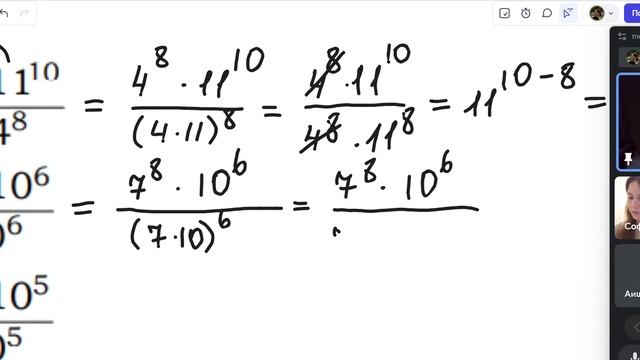 11^10 / 4^8 = 4^8 · 11^10 / (4·11)^8 = 4^8 · 11^10 / 4^8 · 11^8 = 11^(10-8) =
10^6 / 0^6 = 7^8 · 10^6 / (7·10)^6 = 7^8 · 10^6
10^5 / 0^5
Соф
Аиш